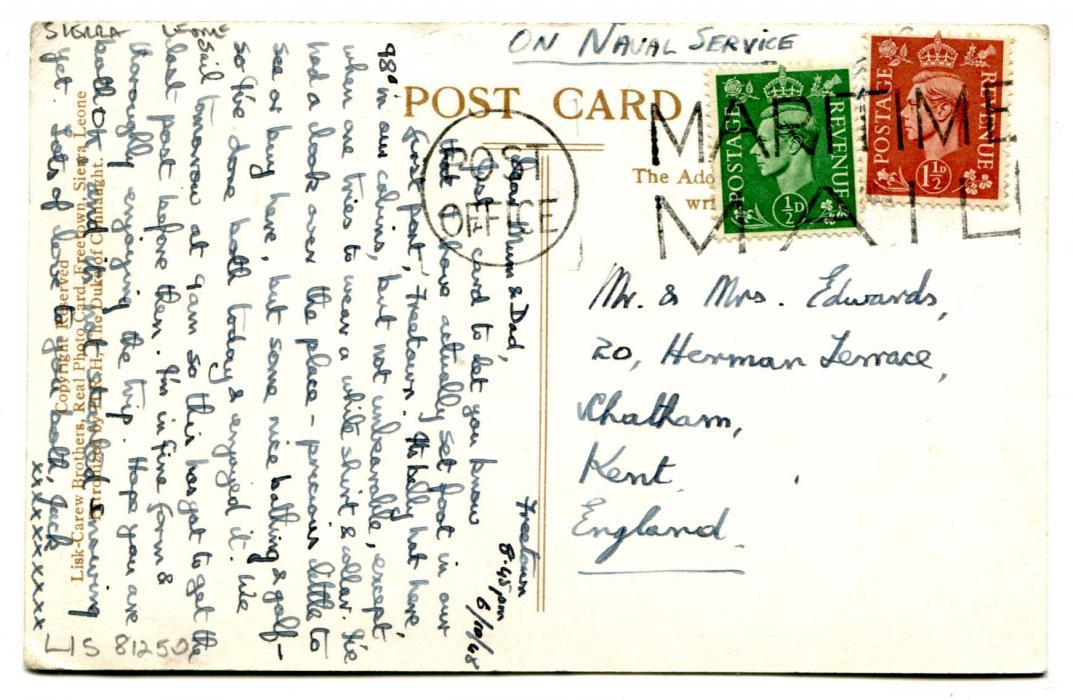 SIERRA LEONE
ON NAVAL SERVICE
POST CARD
The Add
wri
POST
OFFICE
MARITIME
MAIL
POSTAGE REVENUE
½D
POSTAGE REVENUE
1½D
Mr. & Mrs. Edwards,
20, Herman Terrace,
Chatham,
Kent
England.
Freetown
8.45pm
6/10/48
Dear Mum & Dad,
Just a card to let you know
that we have actually set foot in our
first port, Freetown. It's belly hot here,
98° in our cabins, but not unbearable, except
when one tries to wear a white shirt & collar. I've
had a look over the place - precious little to
see or buy here, but some nice bathing & golf -
so I've done both today & enjoyed it. We
sail tomorrow at 9am so this has got to get the
last post before then. I'm in fine form &
thoroughly enjoying the trip. Hope you are
both OK and the
yet. Lots of love to you both, Jack
xxxxxxxxx
Copyright Reserved
Lisk-Carew Brothers, Real Photo Card, Freetown, Sierra Leone
Patronized by H.R.H, The Duke of Connaught.
LIS 81250